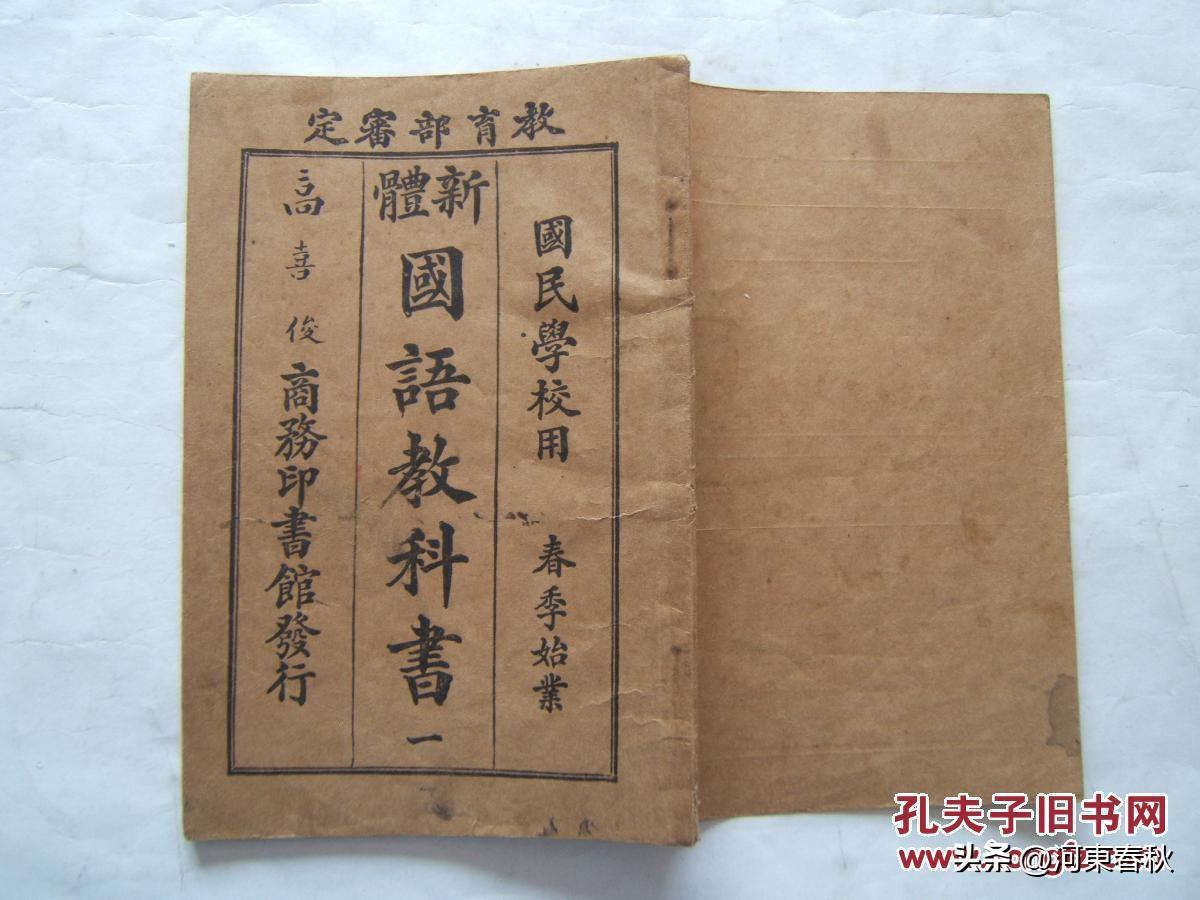 教育部審定
國民學校用 春季始業
新體
國語教科書 一
高喜俊
商務印書館發行
孔夫子旧书网
头条 @河東春秋